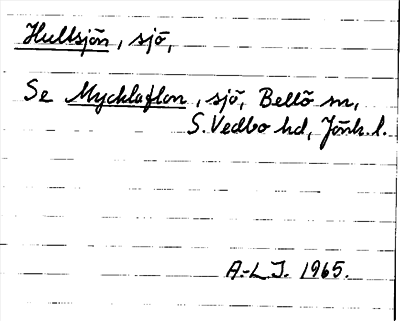 Hultsjön, sjö,
Se Mycklaflon, sjö, Bellö sn,
S. Vedbo hd, Jönk. l.
A-L J. 1965.